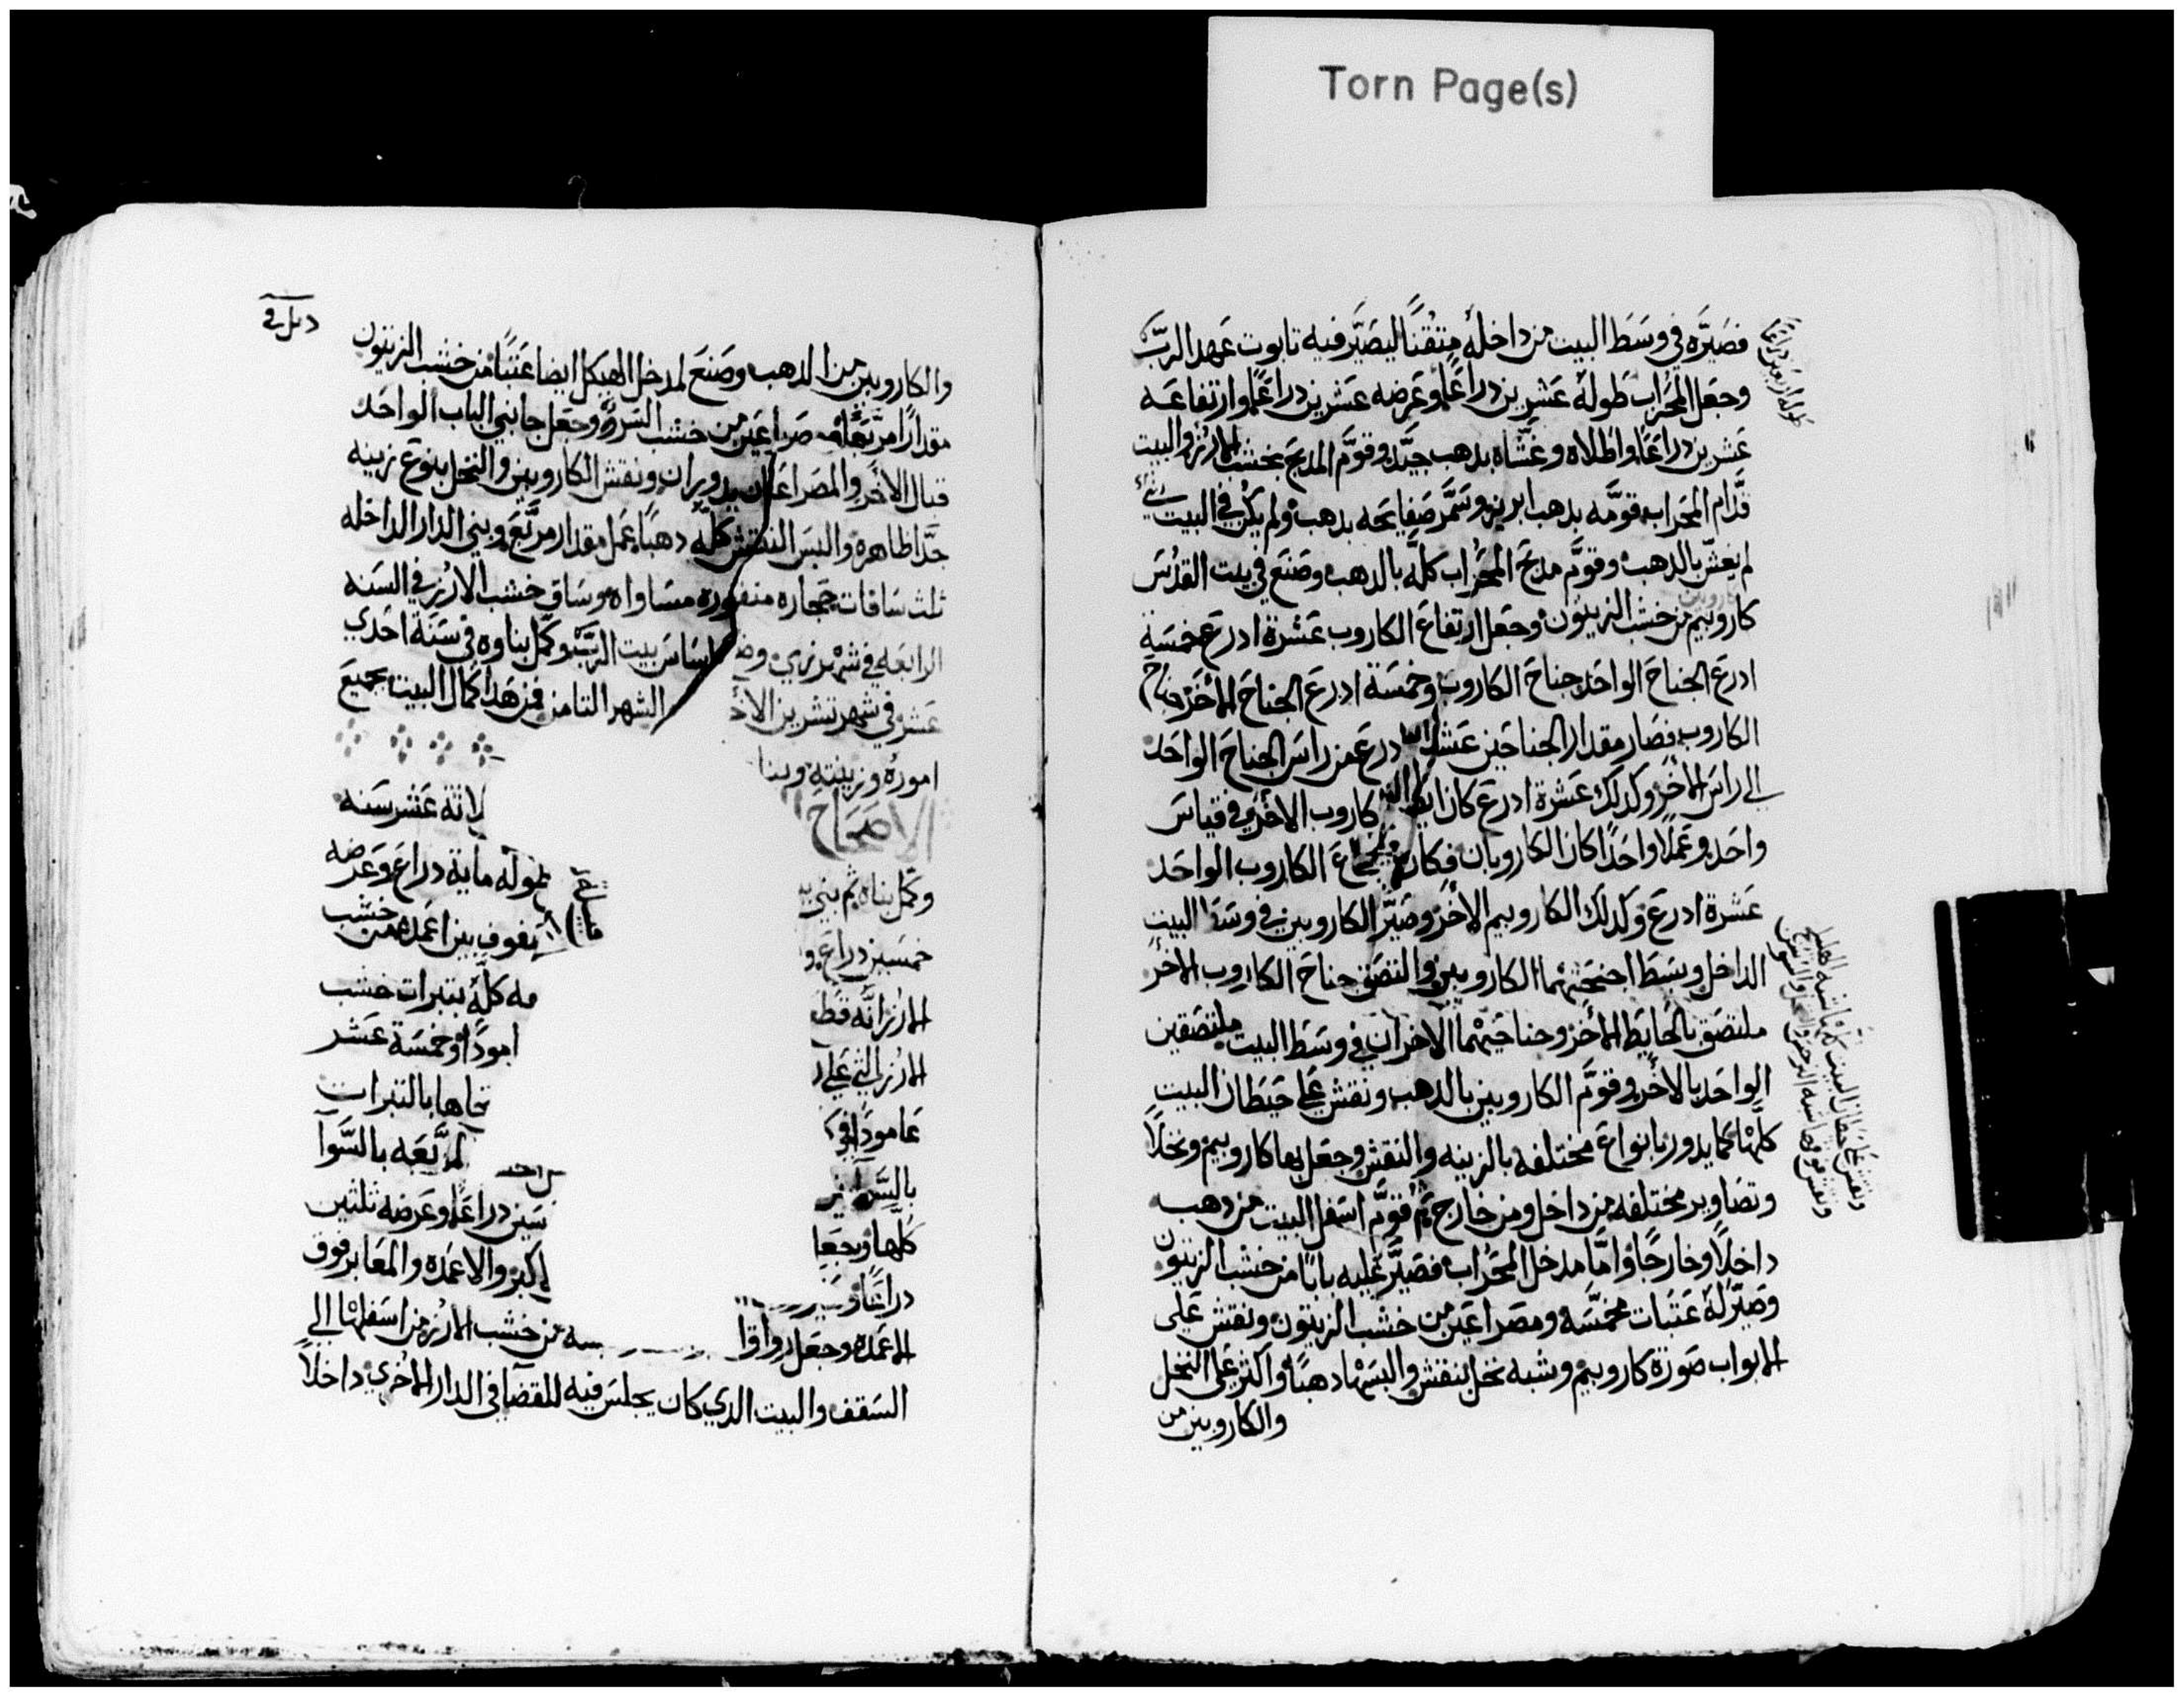 Torn Page(s)
فصَيَّره في وسَط البيت من داخله متقنًا ليصَيَّر فيه تابوت عَهد الربّ
وجعَل المحَراب طوله عَشرين دراعًا وعَرضه عَشرين دراعًا وارتفاعَه
عَشرين دراعًا واطلاه وغشَّاه بدهب جيَّد وقوَّم المدبح بخشب الارُز والبيت
قدَّام المحَراب قومَّه بدهب ابريز وسَمَّر صَفايحَه بدهب ولم يكن في البيت شي
لم يغشّ بالدهب وقوَّم مدبَح المحَراب كلّه بالدهب وصَنَع في بيت القدُسَ
كاروبيم من خشب الزيتون وجعَل ارتفاعَ الكاروب عَشرة ادرع خمسَة
ادرعَ الجناحَ الواحَد جناحَ الكاروب وخمسَة ادرعَ الجناحَ الاخَر جناح
الكاروب فصَار مقدار الجناحَين عَشرة ادرعَ من راسَ الجناحَ الواحَد
الي راسَ الاخَر وكدلك عَشرة ادرع كان ايضا الكاروب الاخَر وفي قياسَ
واحَد وعَملًا واحَدًا كان الكاروبان فكان ارتفاعَ الكاروب الواحَد
عَشرة ادرع وكدلك الكاروبيم الاخَر وصَيّر الكاروبين في وسَط البيت
الداخل وبسَط اجنحَتهما الكاروبين والتصَق جناحَ الكاروب الاخر
ملتصَق بالحَايط الاخَر وجناحَيهما الاخران في وسَط البيت ملتصَقين
الواحَد بالاخَر وقوَّم الكاروبين بالدهب ونقش علي حَيطان البيت
كلّها كما يدور بانواعَ مختلفه بالزينه والنقش وجعَل بها كاروبيم ونخلًا
وتصَاوير مختلفه من داخل ومن خارج ثم قوَّم اسَفل البيت من دهب
داخلًا وخارجًا وامَّا مدخل المحَراب فصَيَّر عَليه بابًا من خشب الزيتون
وصَيّر لَه عَتبات مخمسَّه ومصَراعَين من خشب الزيتون ونقش عَلي
الابواب صَورة كاروبيم وشبه نخل بنقش والبسَها دهبًا واكثر عَلي النخل
والكاروبين من
طوله اربعين دراعًا
والكاروبين من الدهب وصَنَع لمدخل الهيكل ايضا عَتبًا من خشب الزيتون
مقدارًا مربَّعًا ومصَراعَين من خشب السَرو وجعَل جانبي الباب الواحَد
قبال الاخَر والمصَراعَان يدوران ونقش الكاروبين والنخل بنوع زينه
جدَّا ظاهره والبسَ النقش كلّه دهبًا عَمل مقدار مربَّعَ وبني الدار الداخله
ثلث سَافات حجاره منقوره مسَاواه وسَاق خشب الارُز في السَنه
الرابعَه في شهر نري وضع اسَاسَ بيت الربّ وكمّل بناوه في سَنَة احَدي
عَشر في شهر تشرين الاخـ الشهر التامن فمن هَدا كمال البيت بجميعَ
اموره وزينته وبنا
الاصَحَاح لاثة عَشر سَنه
وكمّل بناه ثم بني بيـ طولَه ماية دراع وعَرضه
خمسَين دراعَ و صفوف بين اعَمده من خشب
الارز انَّه قطـ مه كلّه بتبرات خشب
الارز التي علي ا امودًا وخمسَة عَشر
عَامودًا في كـ تحاها بالتبرات
مربَّعَه بالسَّوآ
كلّها وجعَل سَين دراعًا وعَرضه ثلثين
دراعًا و اكبر والاعَمده والمعَابر فوق
الاعَمده وجعَل رواقا سه من خشب الارز من اسَفلها الي
السَقف والبيت الدي كان يجلسَ فيه للقضا في الدار الاخري داخلًا